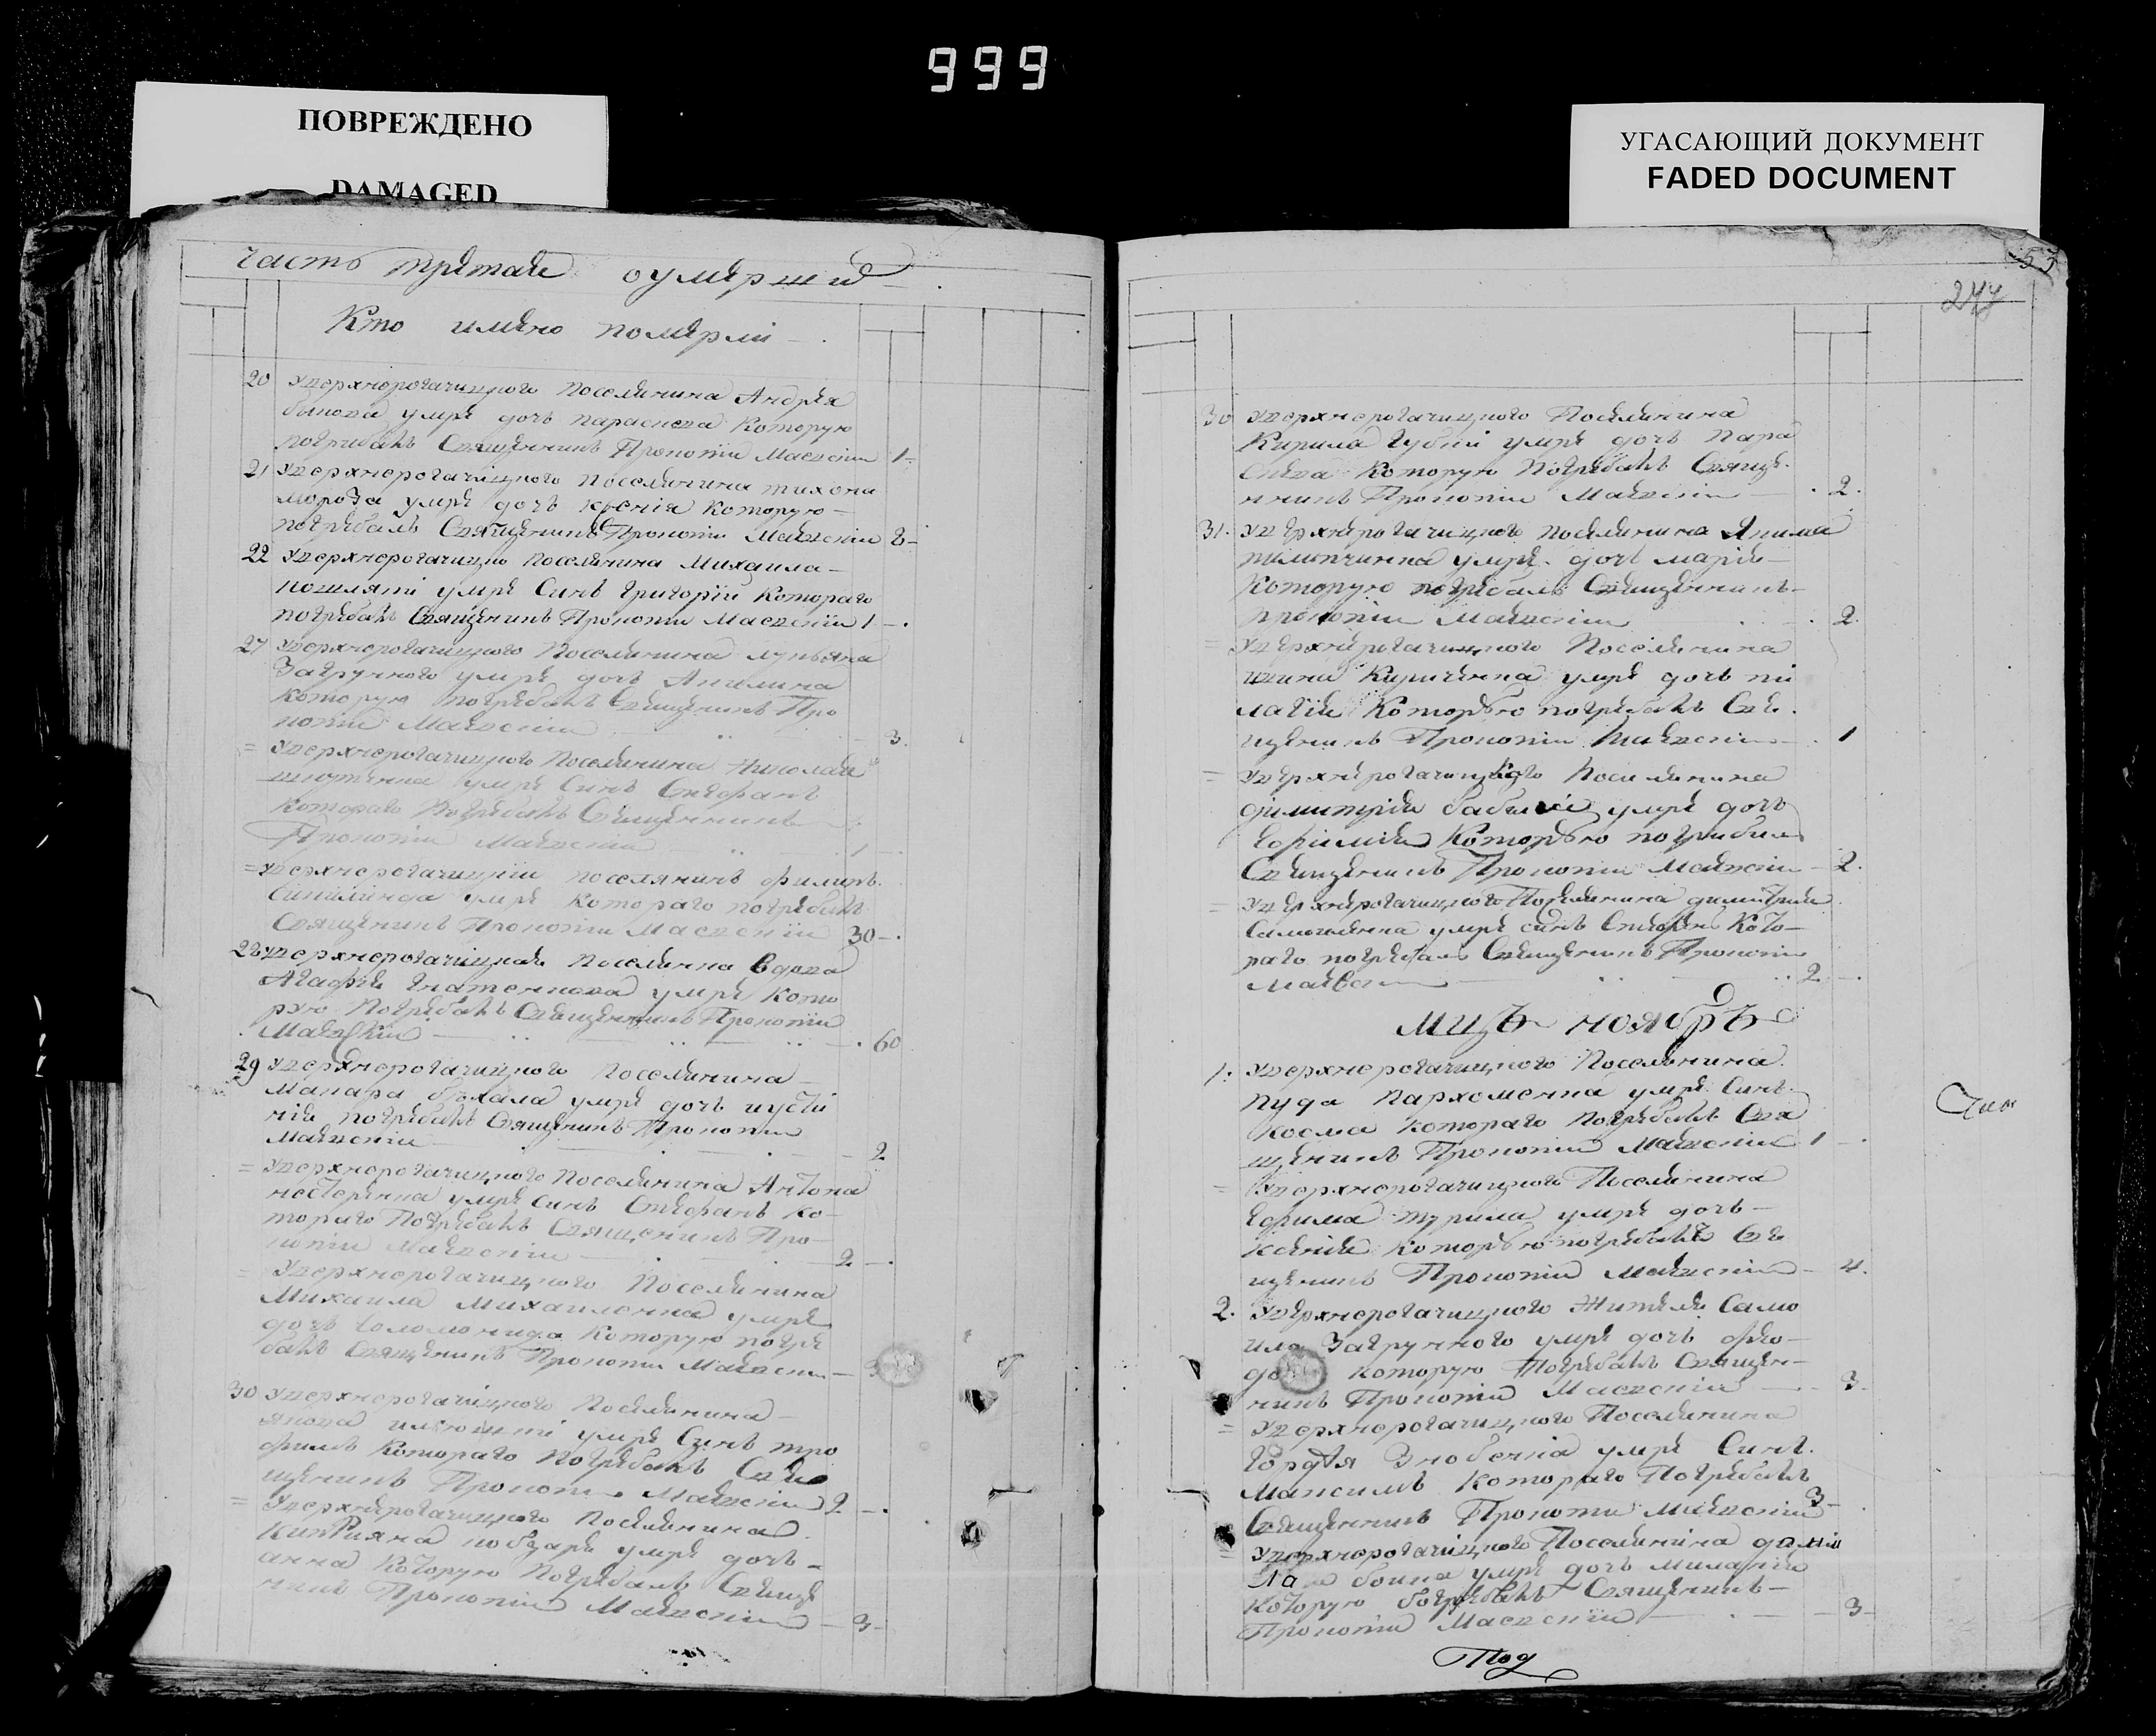 999
ПОВРЕЖДЕНО
DAMAGED
УГАСАЮЩИЙ ДОКУМЕНТ
FADED DOCUMENT
часть третая о умерши
Кто имено померли
20 Уверхнерогачицкого поселянина Андрея
Быкова умре дочь параскева Которую
погрибалъ Священникъ Прокопiи Маевскiи 1
21 Уверхнерогачицкого поселянина тихона
мороза умре дочь ксения Которую
погребалъ Священникъ Прокопiи Маевскiи 2
22 Уверхнерогачицко поселянина Михаила
умре Синъ григорiй Котораго
погребалъ Священикъ Прокопiи Маевскiи 1
27 Уверхнерогачицкого Поселянина лукьяна
Загрунного умре дочь Акилина
Которую погребалъ Священикъ Про
копiи Маевскiи 3.
= Уверхнерогачицкого Поселянина Николая
умре Синъ Стефанъ
Котораго Погребалъ Священникъ
Прокопiи Маевскiи 1
= Уверхнерогачицкiи поселянинъ филипъ
умре Котораго погребалъ
Священикъ Прокопiи Маевскiи 30
28 Уверхнерогачицкая Поселянка вдова
Агафiя умре Кото
рую Погребалъ Священникъ Прокопiи
Маевскiи 60
29 Уверхнерогачицкого Поселянина
Макара умре дочь иусти
нiя погребалъ Священикъ Прокопiи
Маевскiи 2
= Уверхнерогачицкого Поселянина Антона
нестеренка умре синъ Стефанъ Ко-
тораго Погребалъ Священикъ Про-
копiи Маевскiи 2
= Уверхнерогачицкого Поселянина
Михаила Михаиленка умре
дочь Соломонида Которую погре
балъ Священикъ Прокопiи Маевскiи 3
30 Уверхнерогачицкого Поселянина
Якова умре Синъ тро
фимъ Котораго Погребалъ Свя
щеникъ Прокопiи Маевскiи 2
= Уверхнерогачицкого Поселянина
Киприяна кобзаря умре дочь
анна Которую Погребалъ Свяще
никъ Прокопiи Маевскiи 3
53
277
30 Уверхнерогачицкого Поселянина
Кирила Губы умре дочь Пара
скева Которую Погребалъ Свяще-
нникъ Прокопiи Маевскiи 2.
31. Уверхнерогачицкого поселянина Якима
пилипчинка умре дочь марiя
Которую погребалъ Священникъ
прокопiи Маевскiи 2
= Уверхнерогачицкого Поселянина
Кириченка умре дочь пе
лагiя Которую погребалъ Свя
щеникъ Прокопiи Маевскiи 1
= Уверхнерогачицкого Поселянина
димитрiя умре дочь
Ефимiя Которую погрибалъ
Священикъ Прокопiи Маевскiи 2.
= Уверхнерогачицкого Поселянина димитрия
Самойленка умре синъ Стефанъ Кото-
раго погребалъ Священикъ Прокопiи
Маевскiи 2
мцъ ноябръ
1. Уверхнерогачицкого Поселянина
пархоменка умре Синъ
Косма Котораго Погребалъ Свя
щеникъ Прокопiи Маевскiи 1
= Уверхнерогачицкого Поселянина
Ефима турила умре дочь
Ксения Которую погребалъ Свя
щеникъ Прокопiи Маевскiи 4.
2. Уверхнерогачицкого Жителя Само
ила Загрунного умре дочь фео-
до Которую Погребалъ Священ-
никъ Прокопiи Маевскiи 3
= Уверхнерогачицкого Поселянина
Гордѣя умре Синъ
Максимъ Котораго Погребалъ
Священникъ Прокопiи Маевскiи 3
= Уверхнерогачицкого Поселянина данiи
ла бойка умре дочь миланiя
Которую погребалъ Священикъ
Прокопiи Маевскiи 3
Тод